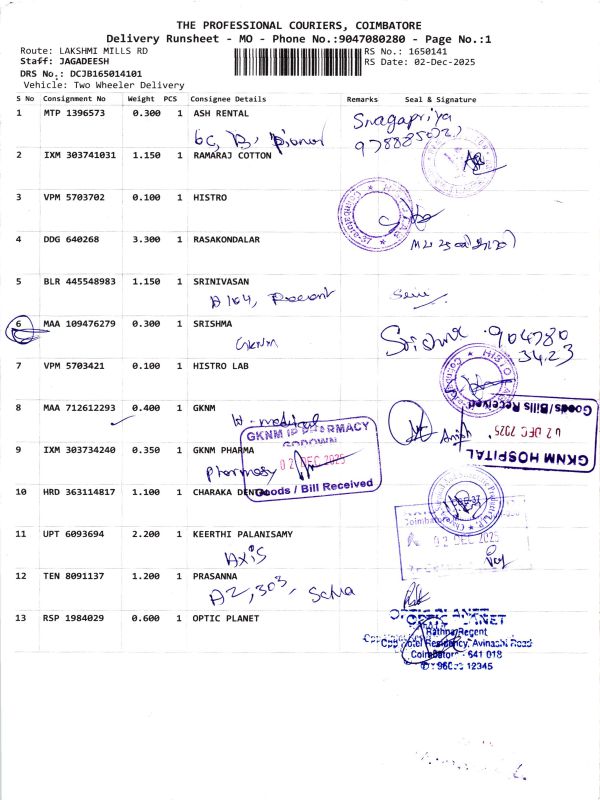 THE PROFESSIONAL COURIERS, COIMBATORE
Delivery Runsheet - MO - Phone No.:9047080280 - Page No.:1
Route: LAKSHMI MILLS RD
RS No.: 1650141
Staff: JAGADEESH
RS Date: 02-Dec-2025
DRS No.: DCJB165014101
Vehicle: Two Wheeler Delivery
S No Consignment No Weight PCS Consignee Details Remarks Seal & Signature
1 MTP 1396573 0.300 1 ASH RENTAL
6C, B,
2 IXM 303741031 1.150 1 RAMARAJ COTTON
3 VPM 5703702 0.100 1 HISTRO
4 DDG 640268 3.300 1 RASAKONDALAR
5 BLR 445548983 1.150 1 SRINIVASAN
A 104,
6 MAA 109476279 0.300 1 SRISHMA
Srishma 904780
3423
GKNM
7 VPM 5703421 0.100 1 HISTRO LAB
8 MAA 712612293 0.400 1 GKNM
medical
Goods/Bills Received
02 DEC 2025
GKNM HOSPITAL
GKNM IP PHARMACY
GODOWN
9 IXM 303734240 0.350 1 GKNM PHARMA
02 DEC 2025
Pharmacy
Goods / Bill Received
10 HRD 363114817 1.100 1 CHARAKA DENTAL
02 DEC 2025
11 UPT 6093694 2.200 1 KEERTHI PALANISAMY
Axis
12 TEN 8091137 1.200 1 PRASANNA
A2, 303,
13 RSP 1984029 0.600 1 OPTIC PLANET
OPTIC PLANET
Rathna Regent
Opp Hotel Residency, Avinashi Road
Coimbatore - 641 018
12345